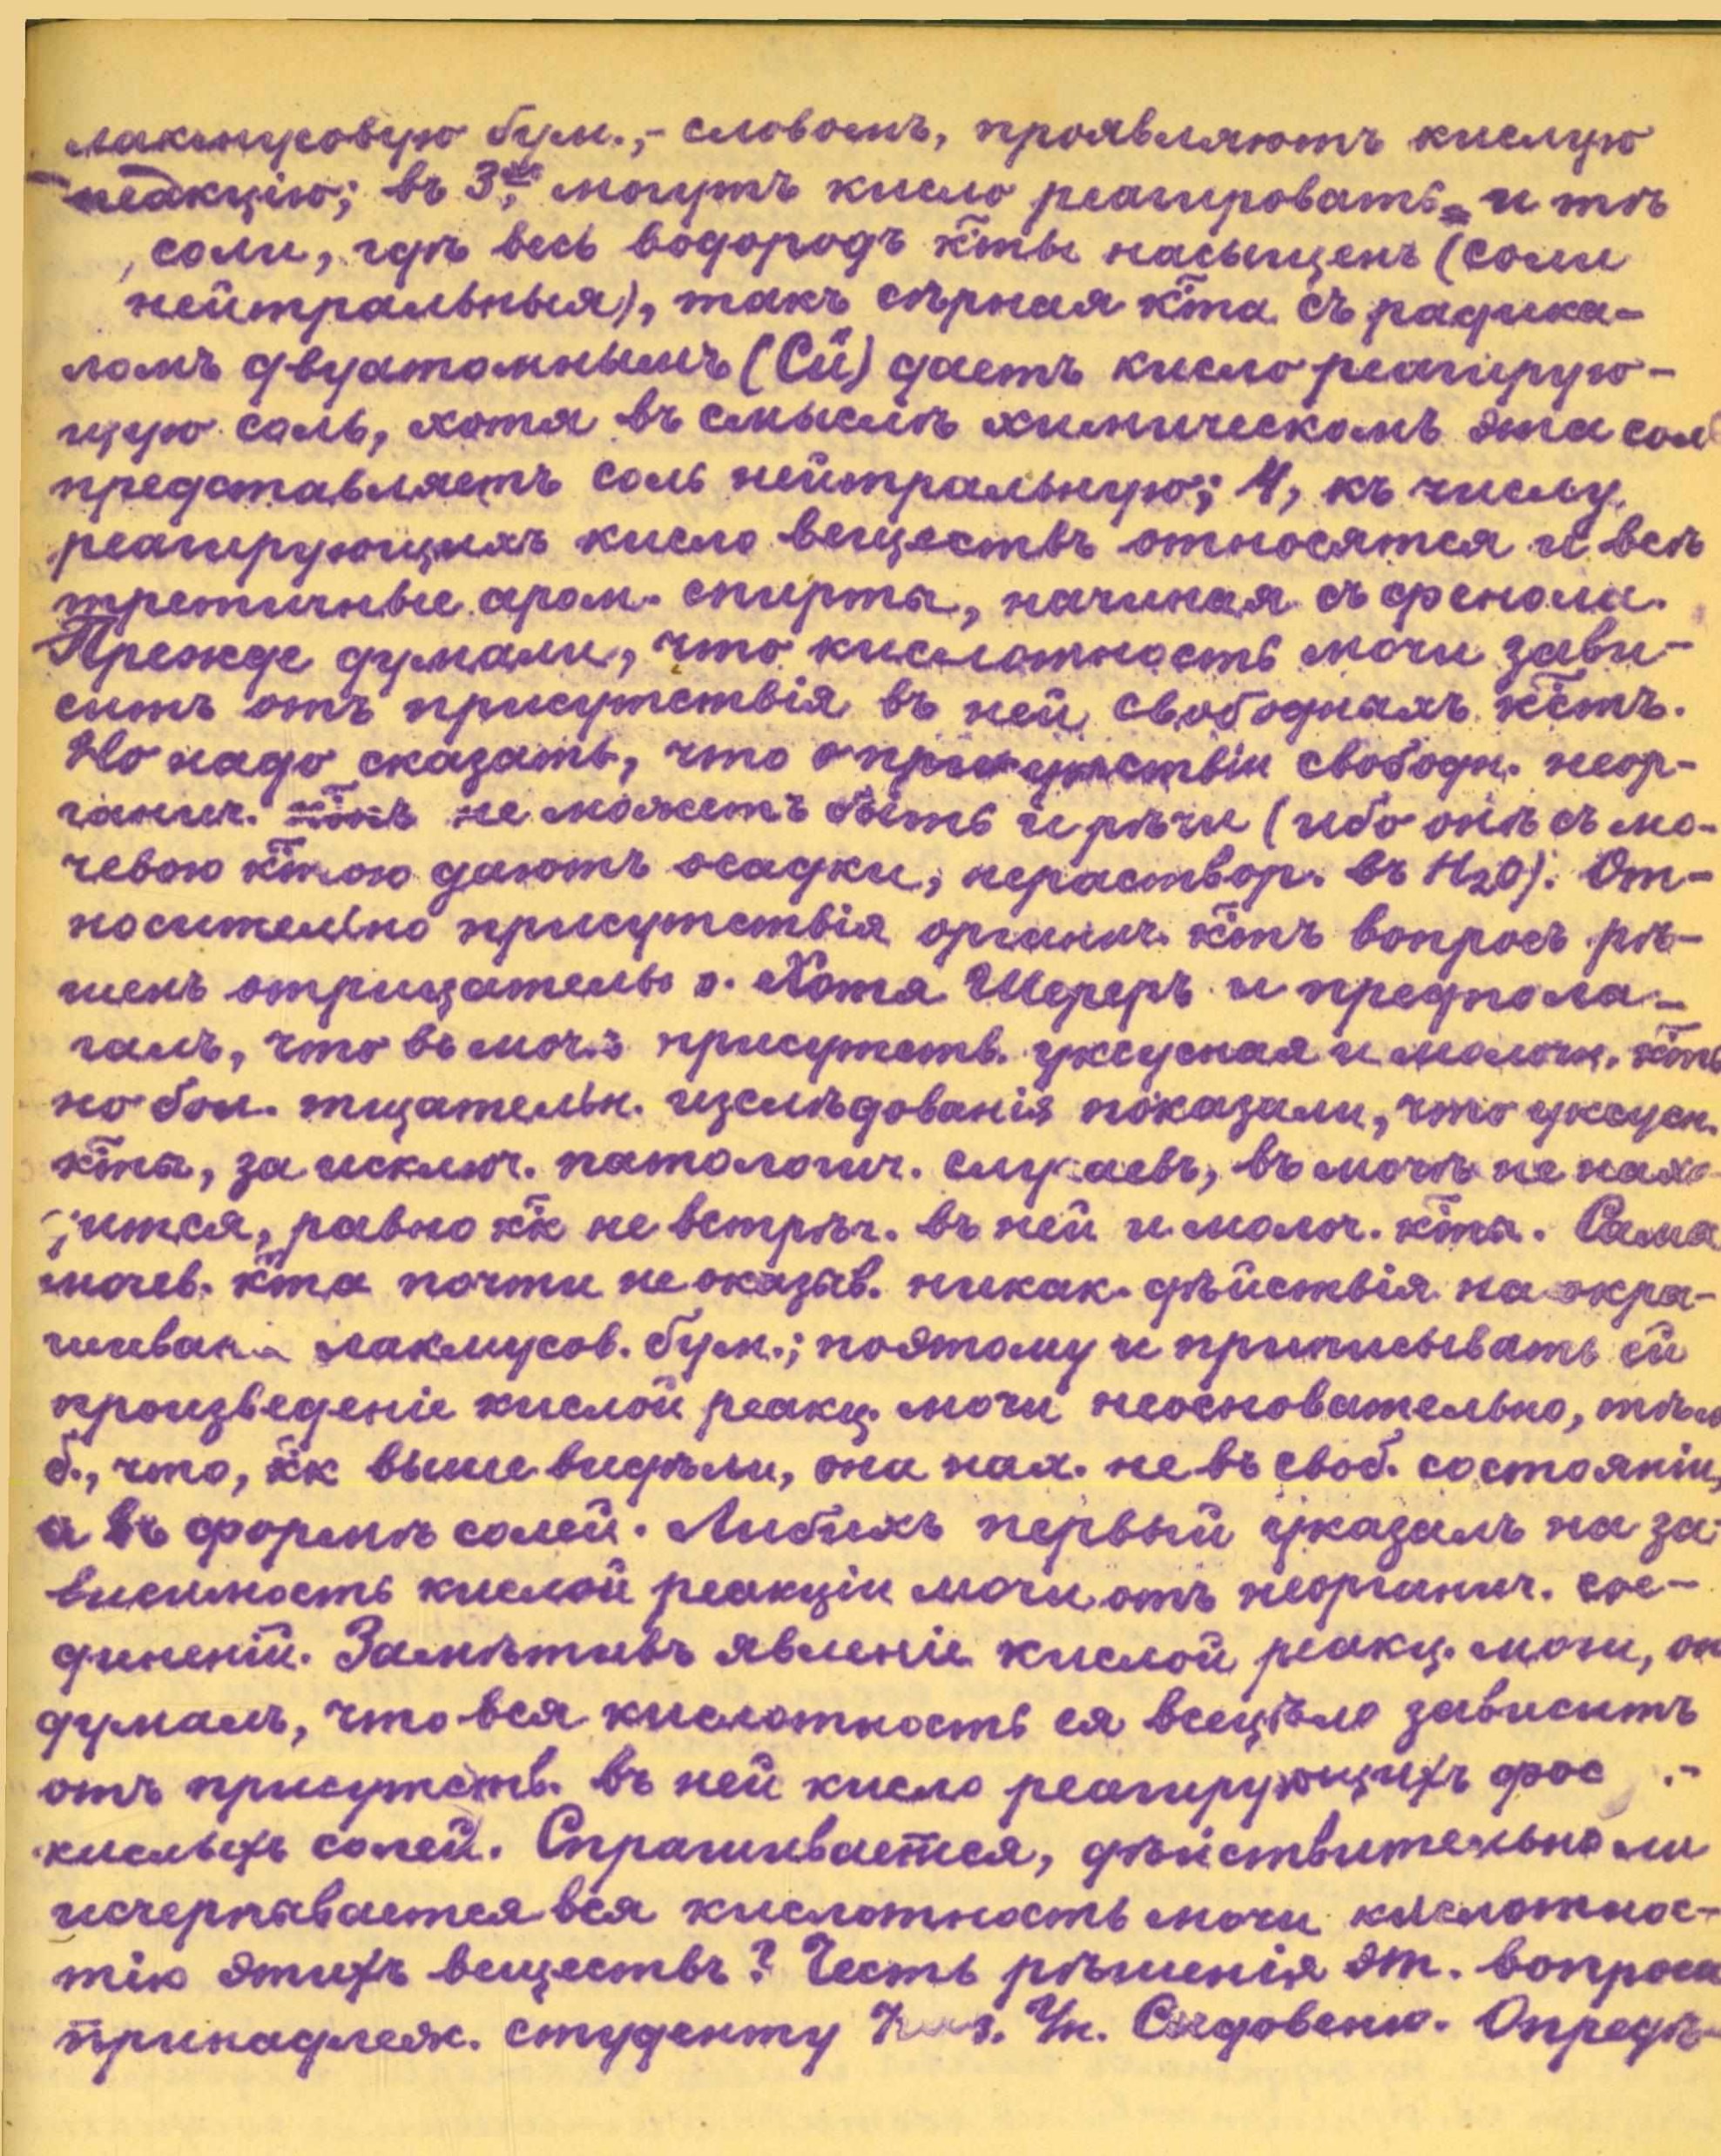 лакмусовую бум.,- словомъ, проявляютъ кислую
реакцію; въ 3хъ, могутъ кисло реагировать и тѣ
соли, гдѣ весь водородъ к̃ты насыщенъ (соли
нейтральныя), такъ сѣрная к̃та съ радика-
ломъ двуатомнымъ (Cu) даетъ кисло реагирую-
щую соль, хотя въ смыслѣ химическомъ эта сол
представляетъ соль нейтральную; 4, къ числу
реагирующихъ кисло веществъ относятся и всѣ
третичные аром. спирты, начиная съ фенола.
Прежде думали, что кислотность мочи зави-
ситъ отъ присутствія въ ней свободныхъ к̃стъ.
Но надо сказать, что о присутствіи свободн. неор-
ганич. не можетъ быть и рѣчи (ибо онѣ съ мо-
чевою к̃тою даютъ осадки, нераствор. въ H2O). От-
носительно присутствія органич. к̃тъ вопросъ рѣ-
шенъ отрицательно. Хотя Шереръ и предпола-
галъ, что въ мочѣ присутств. уксусная и молочн. к̃ты
но бол. тщательн. изслѣдованія показали, что уксусн.
к̃та, за исключ. патологич. случаевъ, въ мочѣ не нахо-
дится, равно к̃к не встрѣч. въ ней и молоч. к̃та. Сама
мочев. к̃та почти не оказыв. никак. дѣйствія на окра-
шиван лакмусов. бум.; поэтому и приписывать ей
произведеніе кислой реакц. мочи неосновательно, тѣм
б., что, к̃к выше видѣли, она нах. не въ своб. состояніи,
а въ формѣ солей. Либихъ первый указалъ на за-
висимость кислой реакціи мочи отъ неорганич. сое-
диненій. Замѣтивъ явленіе кислой реакц. мочи, он
думалъ, что вся кислотность ея всецѣло зависитъ
отъ присутств. въ ней кисло реагирующихъ фос .-
кислыхъ солей. Спрашивается, дѣйствительно ли
исчерпывается вся кислотность мочи кислотнос-
тію этихъ веществъ? Честь рѣшенія эт. вопроса
принадлеж. студенту Каз. Ун. Опредѣ-